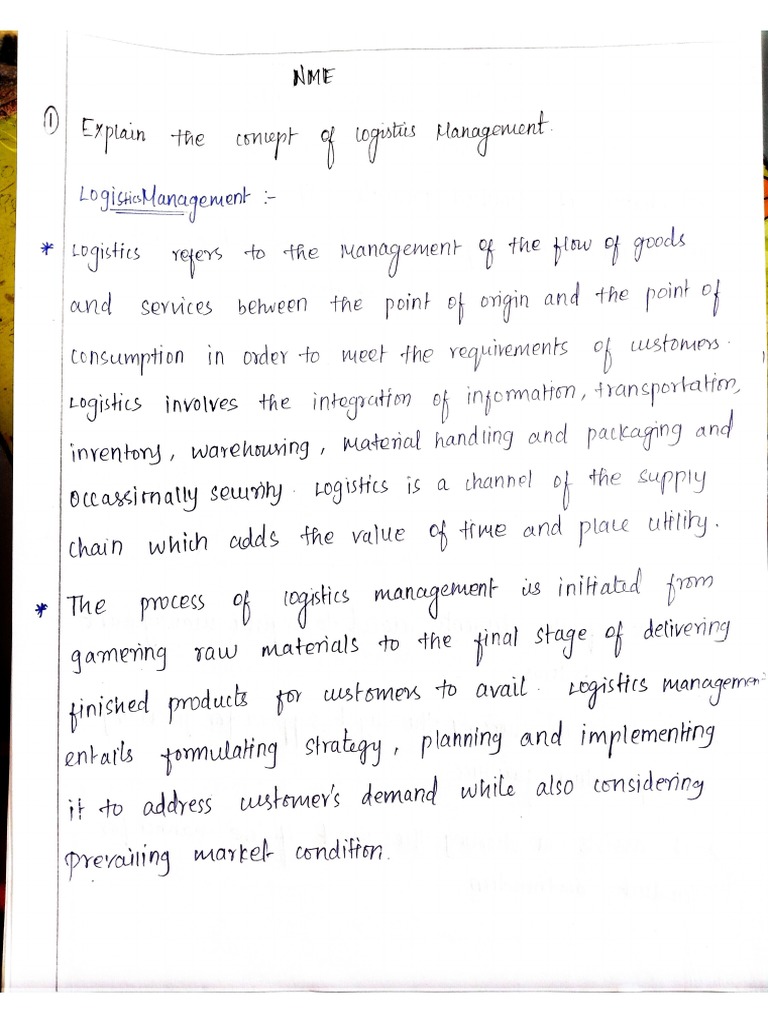 NME
① Explain the concept of Logistics Management.
Logistics Management :-
* Logistics refers to the Management of the flow of goods
and services between the point of origin and the point of
consumption in order to meet the requirements of customers.
Logistics involves the integration of information, transportation,
inventory, warehousing, material handling and packaging and
occassionally security. Logistics is a channel of the supply
chain which adds the value of time and place utility.
* The process of logistics management is initiated from
garnering raw materials to the final stage of delivering
finished products for customers to avail. Logistics management
entails formulating strategy, planning and implementing
it to address customer's demand while also considering
prevailing market condition.